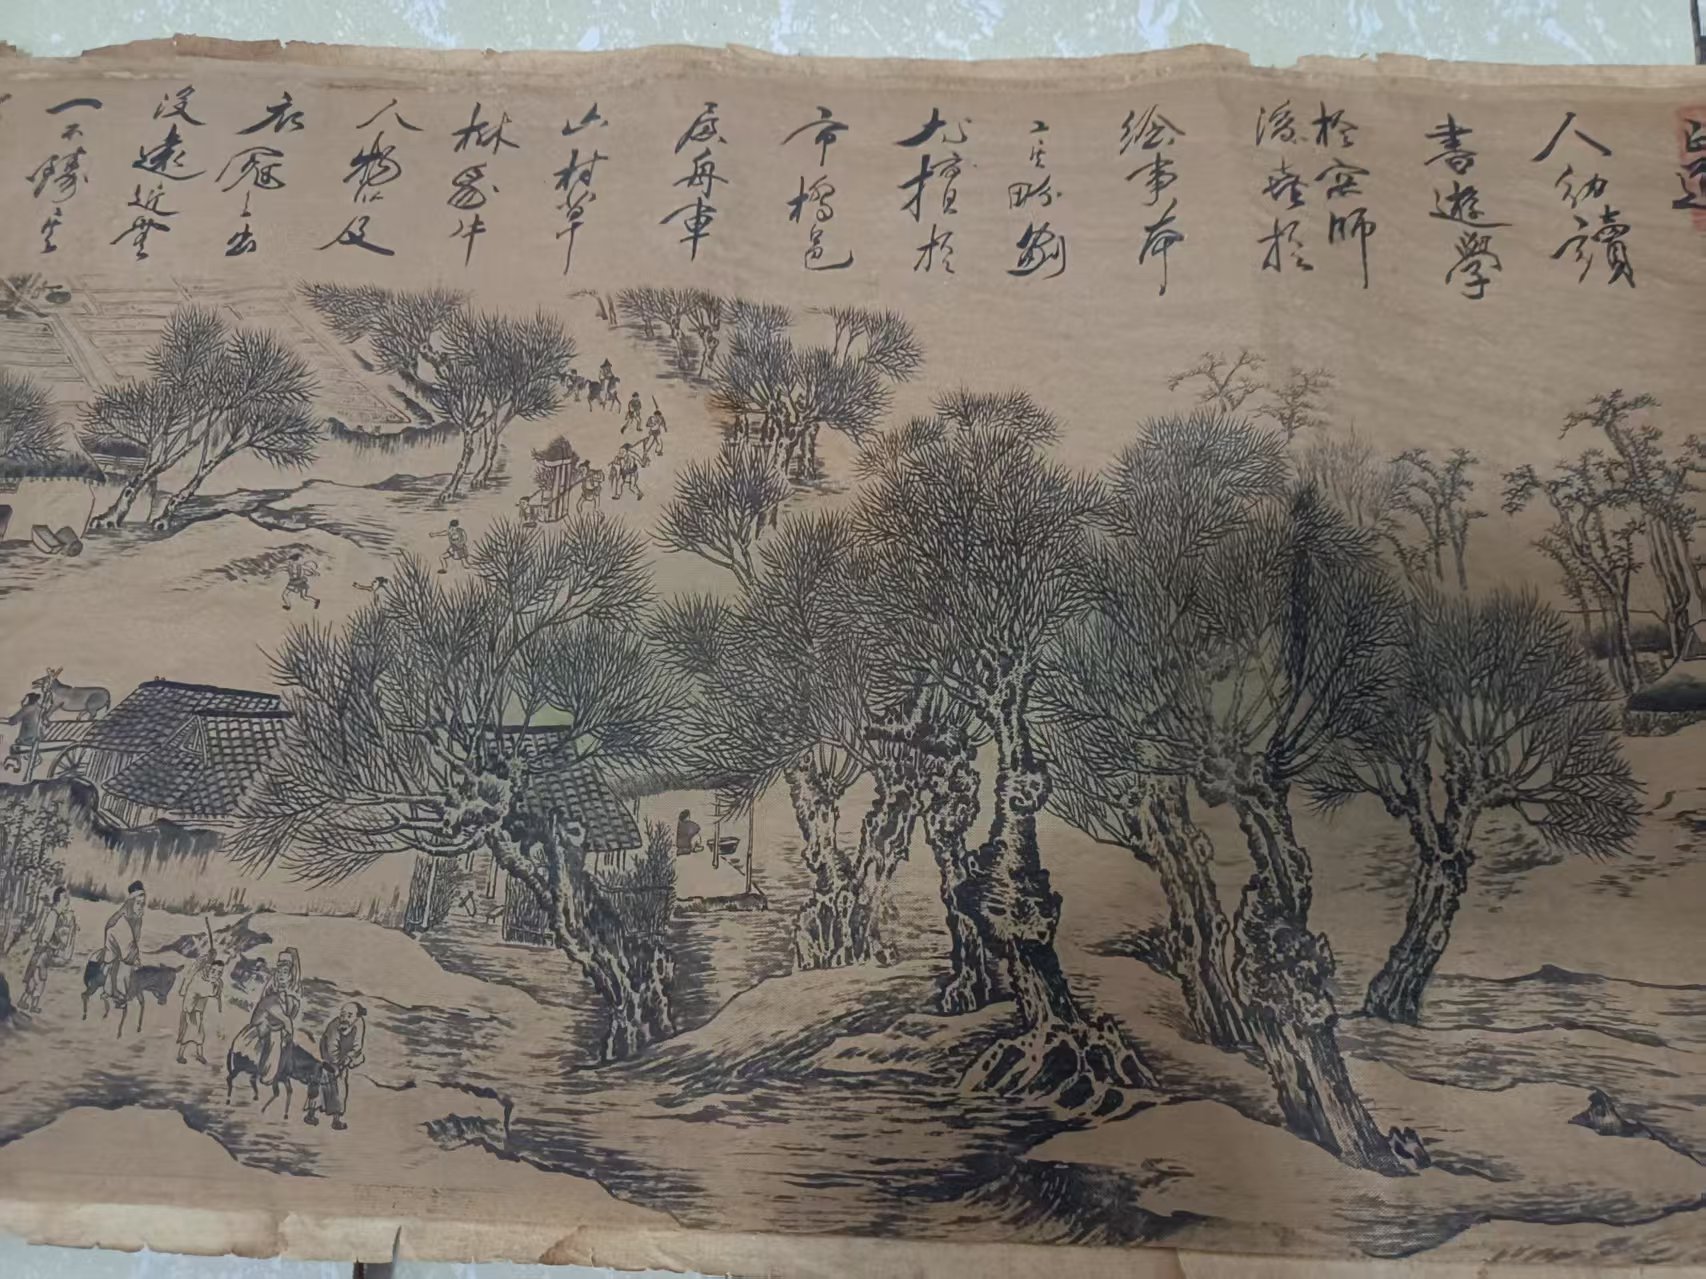 人幼讀
書遊學
於京師
後喜於
繪事
工其畍劃
尤擅於
市橋邑
屋舟車
山村草
林馬牛
人物以及
衣冠之出
没遠近無
一不臻其